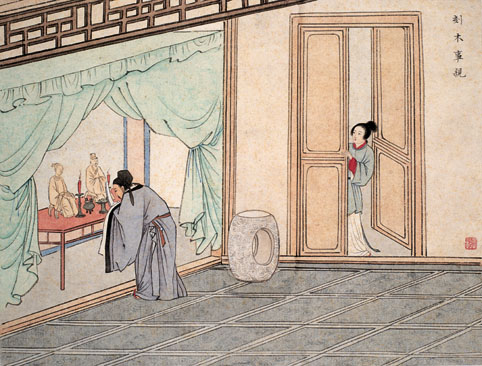 刻木事親